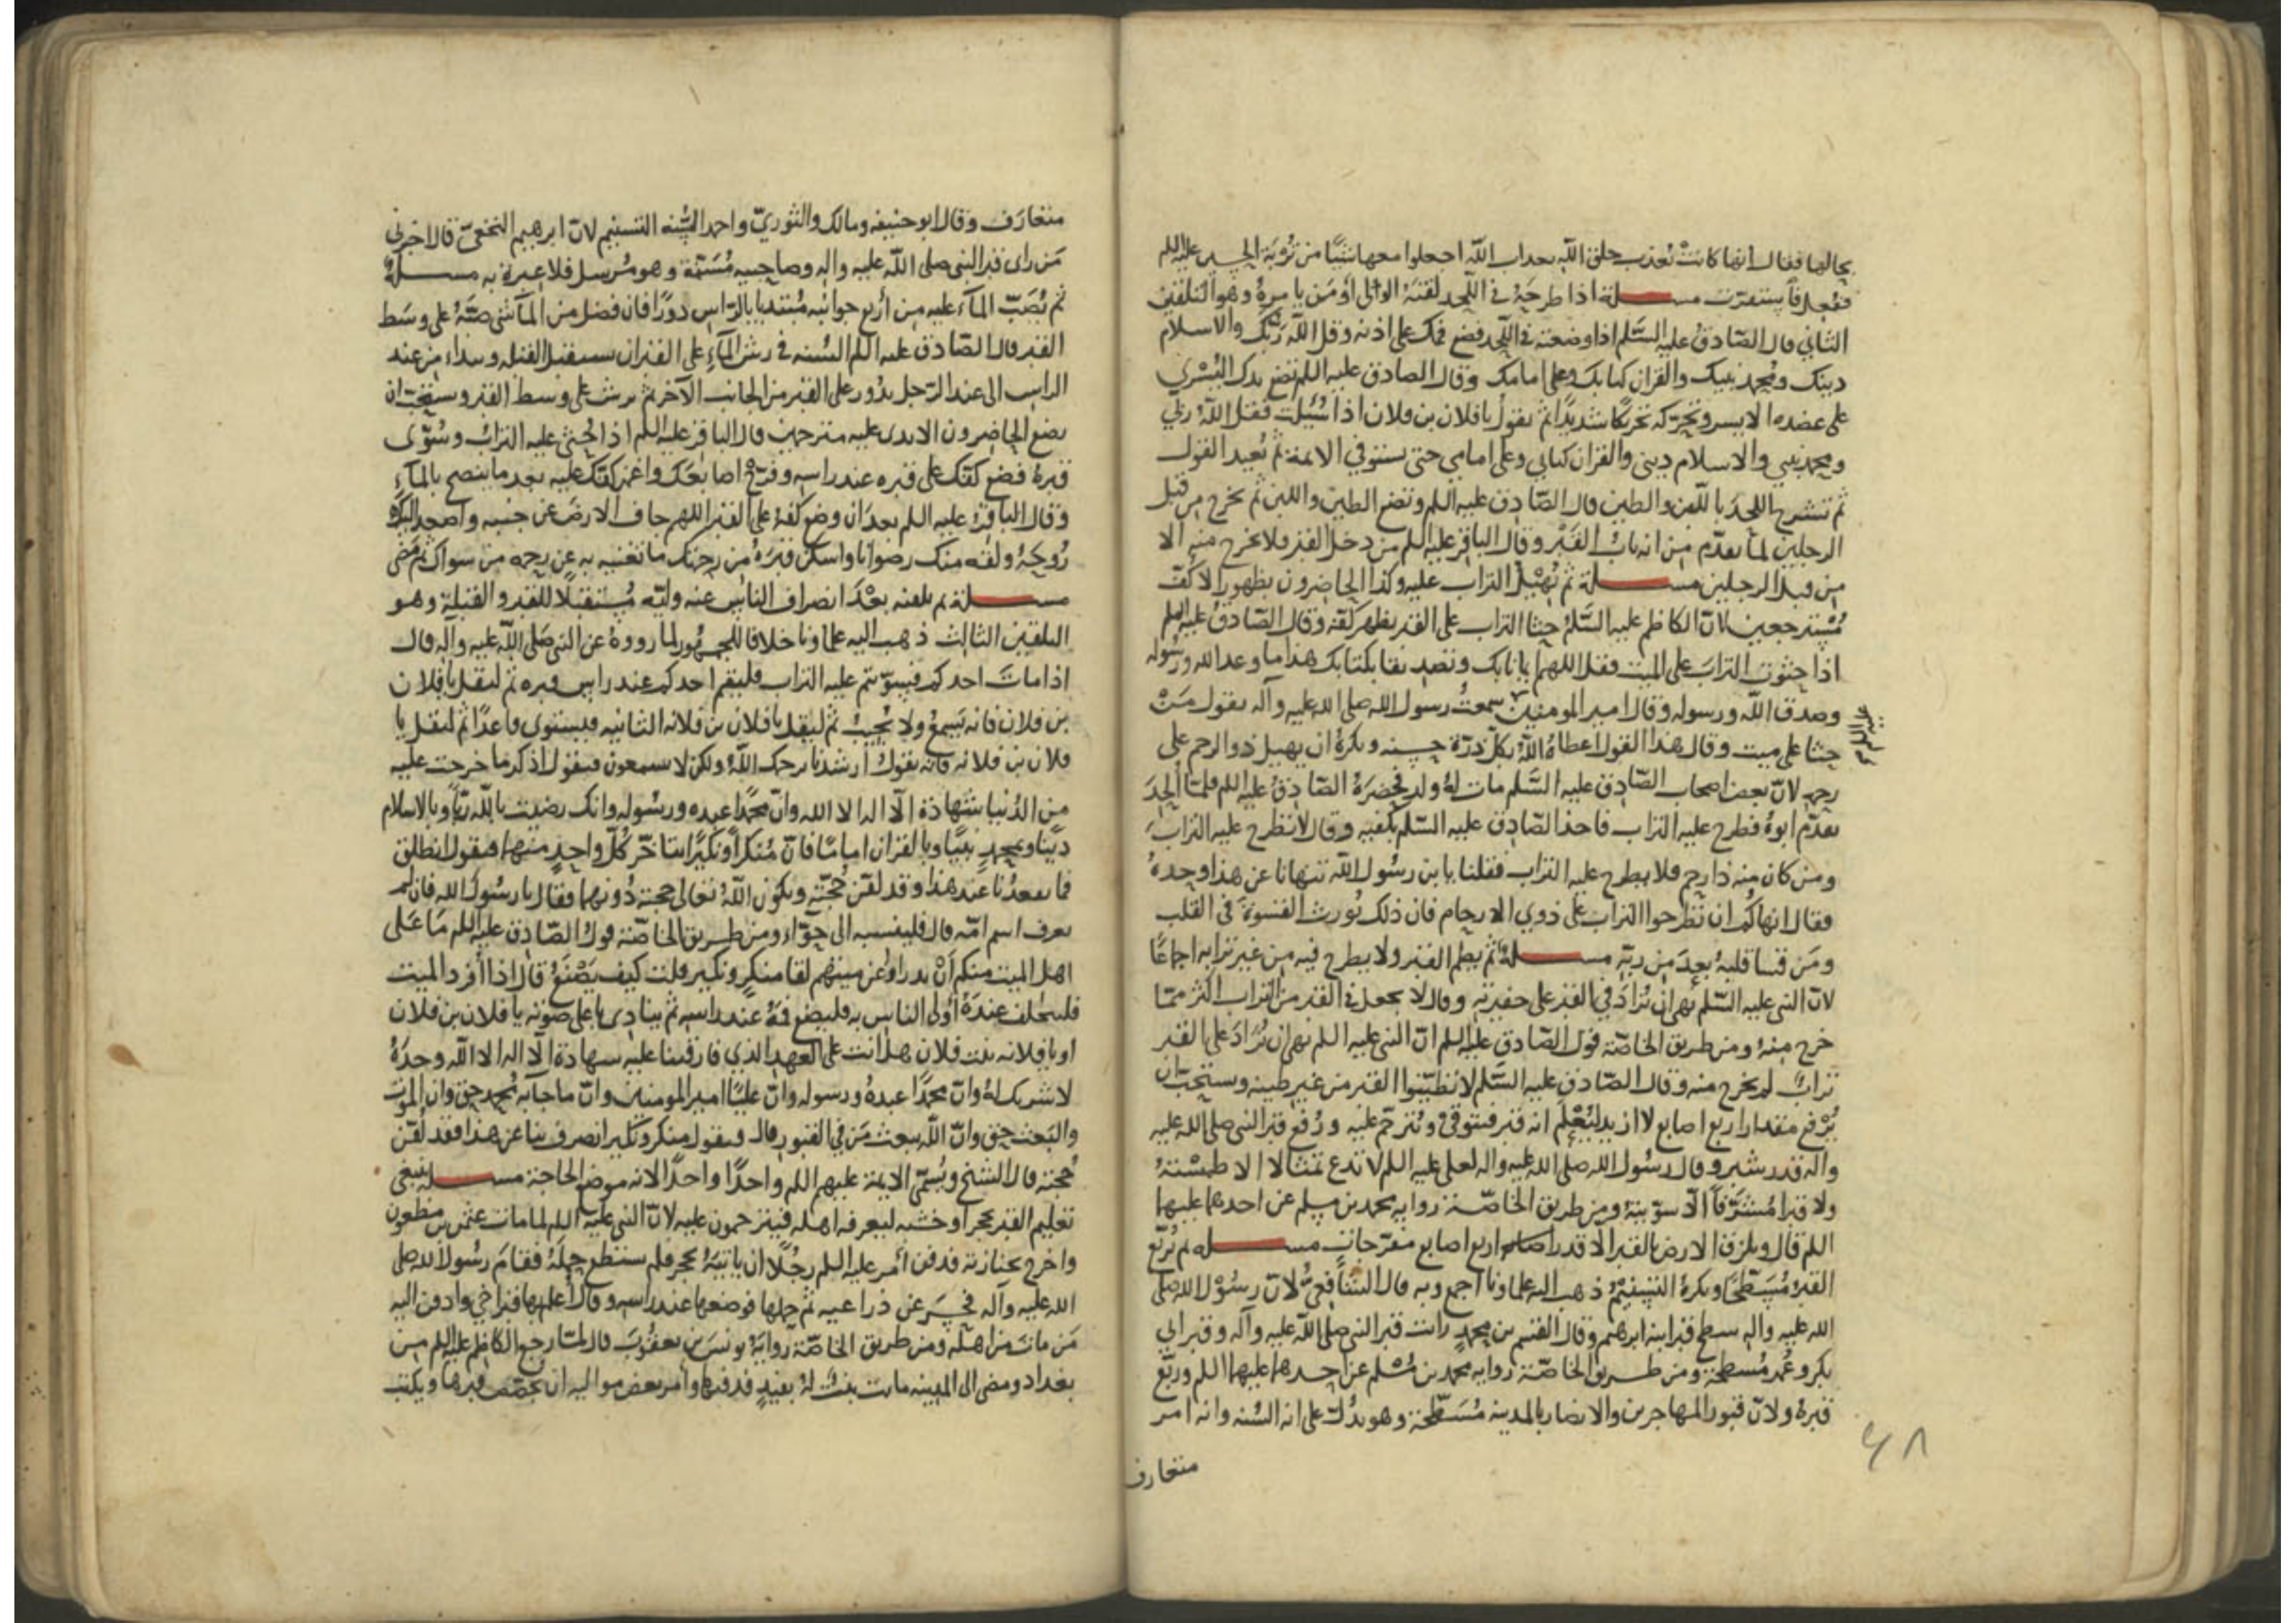 بحالها فقال انها كانت تعذب خلق الله بعذاب الله اجعلوا معها شيئا من تربة الحسين عليه السلم
ففعل فاستقرت مسـلة اذا طرحه في اللحد لقنه الولي او من يامره وهو التلقين
الثاني قال الصادق عليه السلم اذا وضعته في اللحد فضع فمك على اذنه وقل الله ربك والاسلام
دينك ومحمد نبيك والقران كتابك وعلي امامك وقال الصادق عليه السلم تضع يدك اليسرى
على عضده الايسر وتحركه تحريكا شديدا ثم تقول يا فلان بن فلان اذا سئلت فقل الله ربي
ومحمد نبيي والاسلام ديني والقران كتابي وعلي امامي حتى تستوفي الايمة ثم تعيد القول
ثم تشرج اللحد باللبن والطين قال الصادق عليه السلم وتضع الطين واللبن ثم يخرج من قبل
الرجلين لما تقدم من انه باب القبر وقال الباقر عليه السلم من دخل القبر فلا يخرج منه الا
من قبل الرجلين مسـلة ثم تهيل التراب عليه وكذا الحاضرون بظهور الاكف
مسترجعين لان الكاظم عليه السلم حثا التراب على القبر بظهر كفه وقال الصادق عليه السلم
اذا حثوت التراب على الميت فقل اللهم ايمانا بك وتصديقا بكتابك هذا ما وعد الله ورسوله
وصدق الله ورسوله وقال امير المومنين سمعت رسول الله صلى الله عليه وآله يقول من
عليه السلم
حثا على ميت وقال هذا القول اعطاه الله بكل ذرة حسنه ويكره ان يهيل ذو الرحم على
رحمه لان بعض اصحاب الصادق عليه السلم مات له ولد فحضره الصادق عليه السلم فلما الحد
تقدم ابوه فطرح عليه التراب فاخذ الصادق عليه السلم بكفيه وقال لا تطرح عليه التراب
ومن كان منه ذا رحم فلا يطرح عليه التراب فقلنا يا بن رسول الله تنهانا عن هذا وحده
فقال انهاكم ان تطرحوا التراب على ذوي الارحام فان ذلك يورث القسوة في القلب
ومن قسا قلبه بعد من ربه مسـلة ثم يطم القبر ولا يطرح فيه من غير ترابه اجماعا
لان النبي عليه السلم نهى ان يزاد في القبر على حفيرته وقال لا يجعل في القبر من التراب اكثر مما
خرج منه ومن طريق الخاصة قول الصادق عليه السلم ان النبي عليه السلم نهى ان يزاد على القبر
تراب لم يخرج منه وقال الصادق عليه السلم لا تطينوا القبر من غير طينه ويستحب ان
يرفع مقدار اربع اصابع لا ازيد ليعلم انه قبر فيتوقى ويترحم عليه ورفع قبر النبي صلى الله عليه
واله قدر شبر وقال رسول الله صلى الله عليه واله لعلي عليه السلم لا تدع تمثالا الا طمسته
ولا قبرا مشرفا الا سويته ومن طريق الخاصة رواية محمد بن مسلم عن احدهما عليهما
السلم قال ويلزق الارض بالقبر الا قدر اربع اصابع مفرجات مسـلة ثم يربع
القبر مسطحا ويكره التسنيم ذهب اليه علماونا اجمع وبه قال الشافعي لان رسول الله صلى
الله عليه واله سطح قبر ابنه ابرهيم وقال القسم بن محمد رايت قبر النبي صلى الله عليه وآله وقبر ابي
بكر وعمر مسطحة ومن طريق الخاصة رواية محمد بن مسلم عن احدهما عليهما السلم وربع
قبره ولان قبور المهاجرين والانصار بالمدينه مسطحة وهو يدل على انه السنه وانه امر
متعارف
٤٨
متعارف وقال ابو حنيفه ومالك والثوري واحمد السنه التسنيم لان ابرهيم النخعي قال اخبرني
من راى قبر النبي صلى الله عليه واله وصاحبيه مسنمة وهو مرسل فلا عبرة به مسـلة
ثم يصب الماء عليه من اربع جوانبه مبتديا بالراس دورا فان فضل من الماء شي صبه على وسط
القبر قال الصادق عليه السلم السنه في رش الماء على القبر ان تستقبل القبله وتبداء من عند
الراس الى عند الرجل تدور على القبر من الجانب الآخر ثم ترش على وسط القبر ويستحب ان
يضع الحاضرون الايدي عليه مترحمين قال الباقر عليه السلم اذا حثي عليه التراب وسوي
قبره فضع كفك على قبره عند راسه وفرج اصابعك واغمز كفك عليه بعد ما ينضح بالماء
وقال الباقر عليه السلم بعد ان وضع كفه على القبر اللهم جاف الارض عن جنبيه واصعد اليك
روحه ولقه منك رضوانا واسكن قبره من رحمتك ما تغنيه به عن رحمه من سواك ثم مضى
مسـلة ثم يلقنه بعد انصراف الناس عنه وليه مستقبلا للقبر والقبلة وهو
التلقين الثالث ذهب اليه علماونا خلافا للجمهور لما رووه عن النبي صلى الله عليه وآله قال
اذا مات احدكم فسويتم عليه التراب فليقم احدكم عند راس قبره ثم ليقل يا فلان
بن فلان فانه يسمع ولا يجيب ثم ليقل يا فلان بن فلانه الثانيه فيستوي قاعدا ثم ليقل يا
فلان بن فلانه فانه يقول ارشدنا يرحمك الله ولكن لا تسمعون فيقول اذكر ما خرجت عليه
من الدنيا شهادة الا اله الا الله وان محمدا عبده ورسوله وانك رضيت بالله ربا وبالاسلام
دينا وبمحمد نبيا وبالقران اماما فان منكرا ونكيرا يتاخر كل واحد منهما فيقول انطلق
فما يقعدنا عند هذا وقد لقن حجته ويكون الله تعالى حجته دونهما فقال يا رسول الله فان لم
يعرف اسم امه قال فلينسبه الى حواء ومن طريق الخاصة قول الصادق عليه السلم ما على
اهل الميت منكم ان يدراوا عن ميتهم لقا منكر ونكير قلت كيف يصنع قال اذا افرد الميت
فليتخلف عنده اولى الناس به فليضع فمه عند راسه ثم ينادي باعلى صوته يا فلان بن فلان
او يا فلانه بنت فلان هل انت على العهد الذي فارقتنا عليه شهادة الا اله الا الله وحده
لا شريك له وان محمدا عبده ورسوله وان عليا امير المومنين وان ما جا به محمد حق وان الموت
والبعث حق وان الله يبعث من في القبور قال فيقول منكر ونكير انصرف بنا عن هذا فقد لقن
حجته قال الشيخ ويسمي الايمة عليهم السلم واحدا واحدا لانه موضع الحاجة مسـلة ينبغي
تعليم القبر بحجر او خشبه ليعرفه اهله فيترحمون عليه لان النبي عليه السلم لما مات عثمن بن مظعون
واخرج بجنازته فدفن امر عليه السلم رجلا ان ياتيه بحجر فلم يستطع حمله فقام رسول الله صلى
الله عليه وآله فحسر عن ذراعيه ثم حملها فوضعها عند راسه وقال اعلم بها قبر اخي وادفن اليه
من مات من اهله ومن طريق الخاصة رواية يونس بن يعقوب قال لما رجع الكاظم عليه السلم من
بغداد ومضى الى المدينه ماتت بنت له بفيد فدفنها وامر بعض مواليه ان يجصص قبرها ويكتب